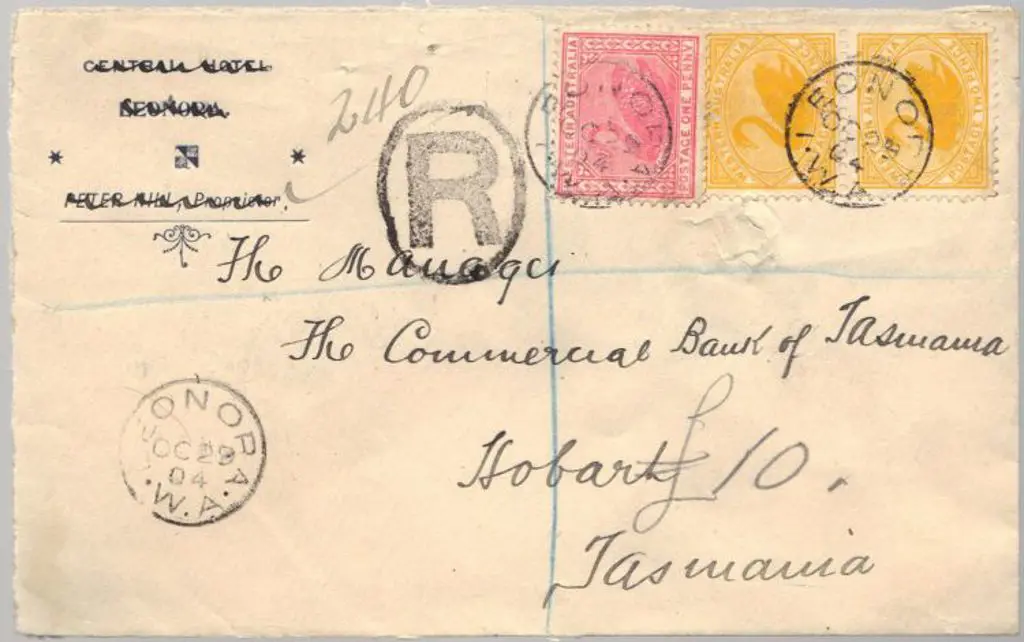 CENTRAL HOTEL
LEONORA.
PETER , Proprietor.
240
R
WESTERN AUSTRALIA
POSTAGE ONE PENNY
WESTERN AUSTRALIA
WESTERN AUSTRALIA
POSTAGE TWO PENCE
LEONORA
OC 29
04
W.A.
LEONORA
OC 29
04
W.A.
The Manager
The Commercial Bank of Tasmania
Hobart
£10.
Tasmania
LEONORA
OC 29
04
.W.A.